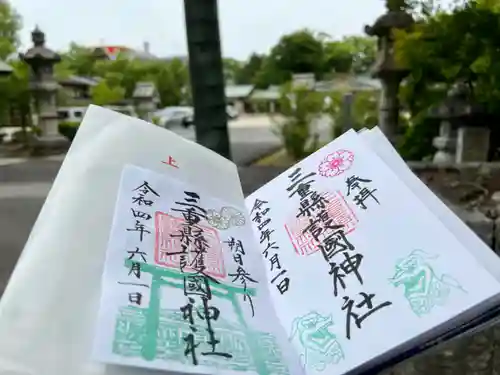 上
朔日参り
三重縣護國神社
令和四年六月一日
奉拝
三重縣護國神社
令和四年六月一日